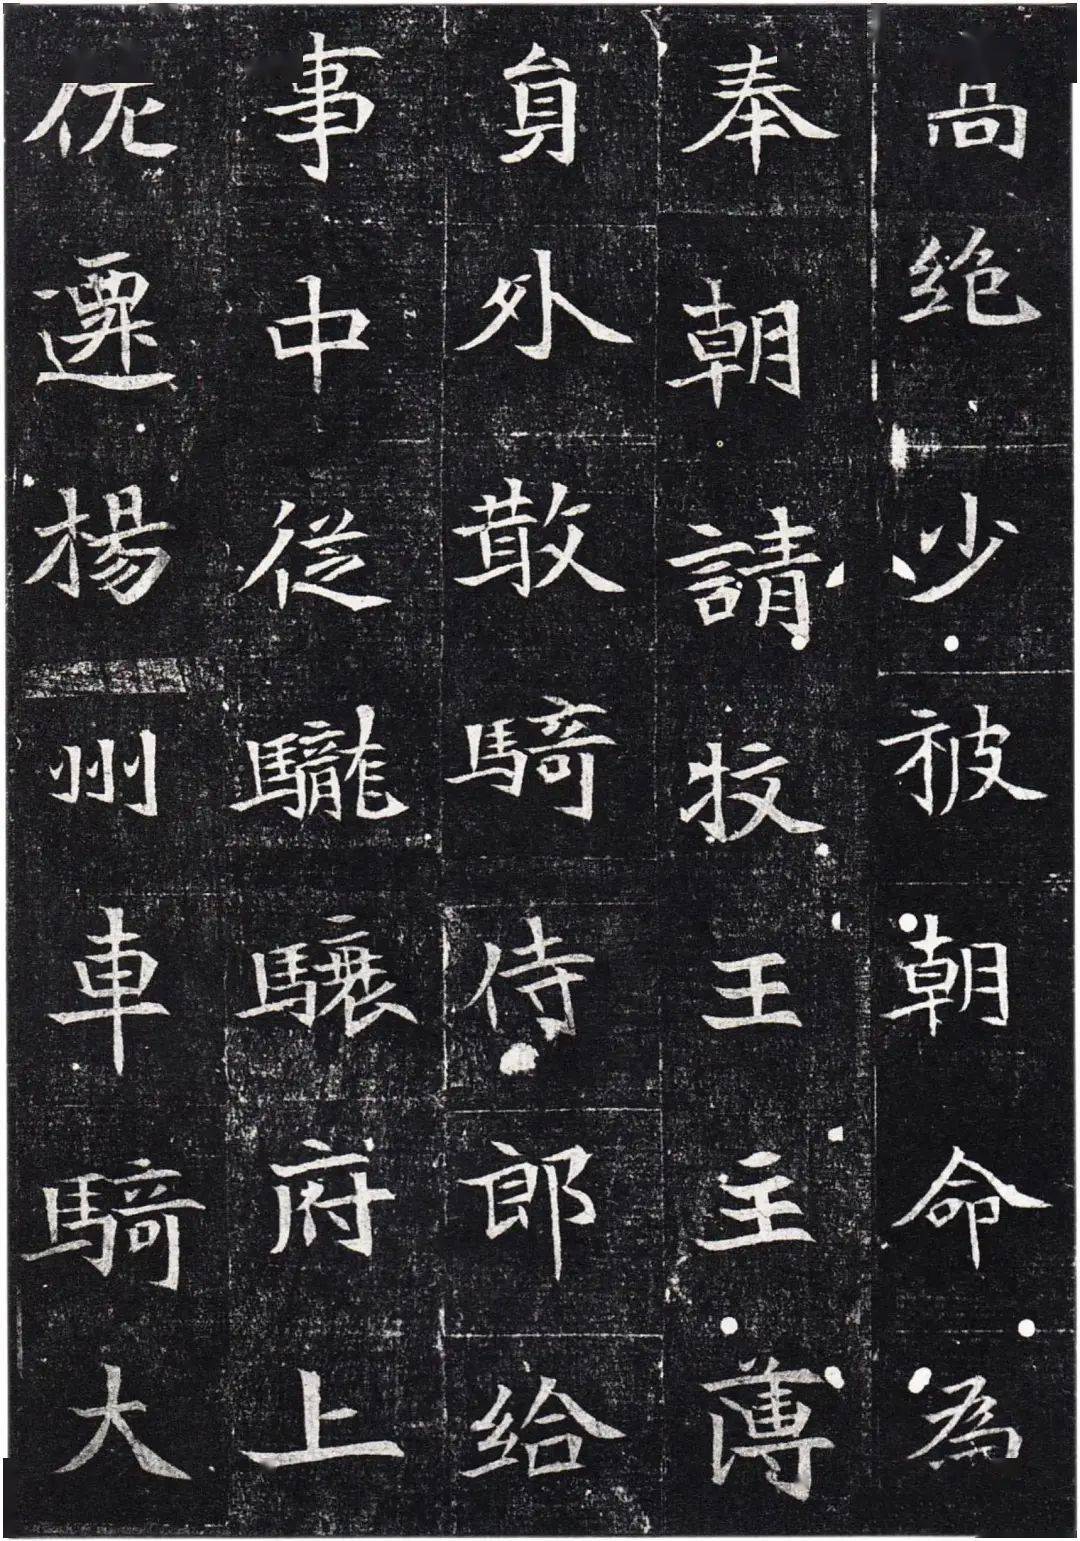 尚絶少被朝命為
奉朝請牧王主薄
員外散騎侍郎給
事中從驤府上
佐遷楊州車騎大